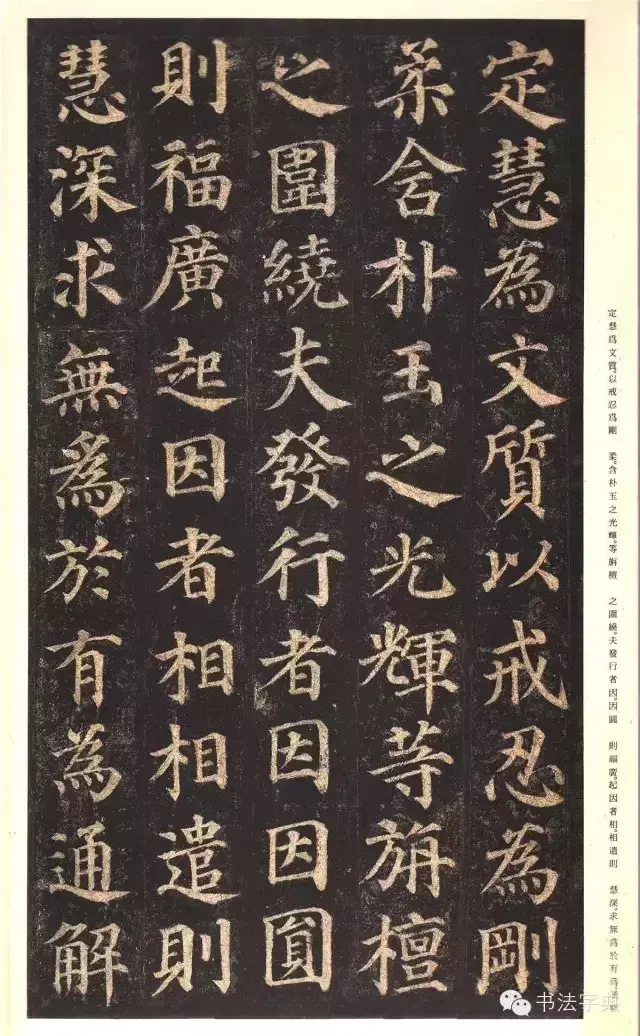 定慧為文質以戒忍為剛
柔含朴玉之光輝等旃檀
之圍繞夫發行者因因圓
則福廣起因者相相遣則
慧深求無為於有為通解
定慧爲文質。以戒忍爲剛 柔。含朴玉之光輝。等旃檀 之圍繞。夫發行者因。因圓 則福廣。起因者相。相遣則 慧深。求無爲於有爲。
书法字典